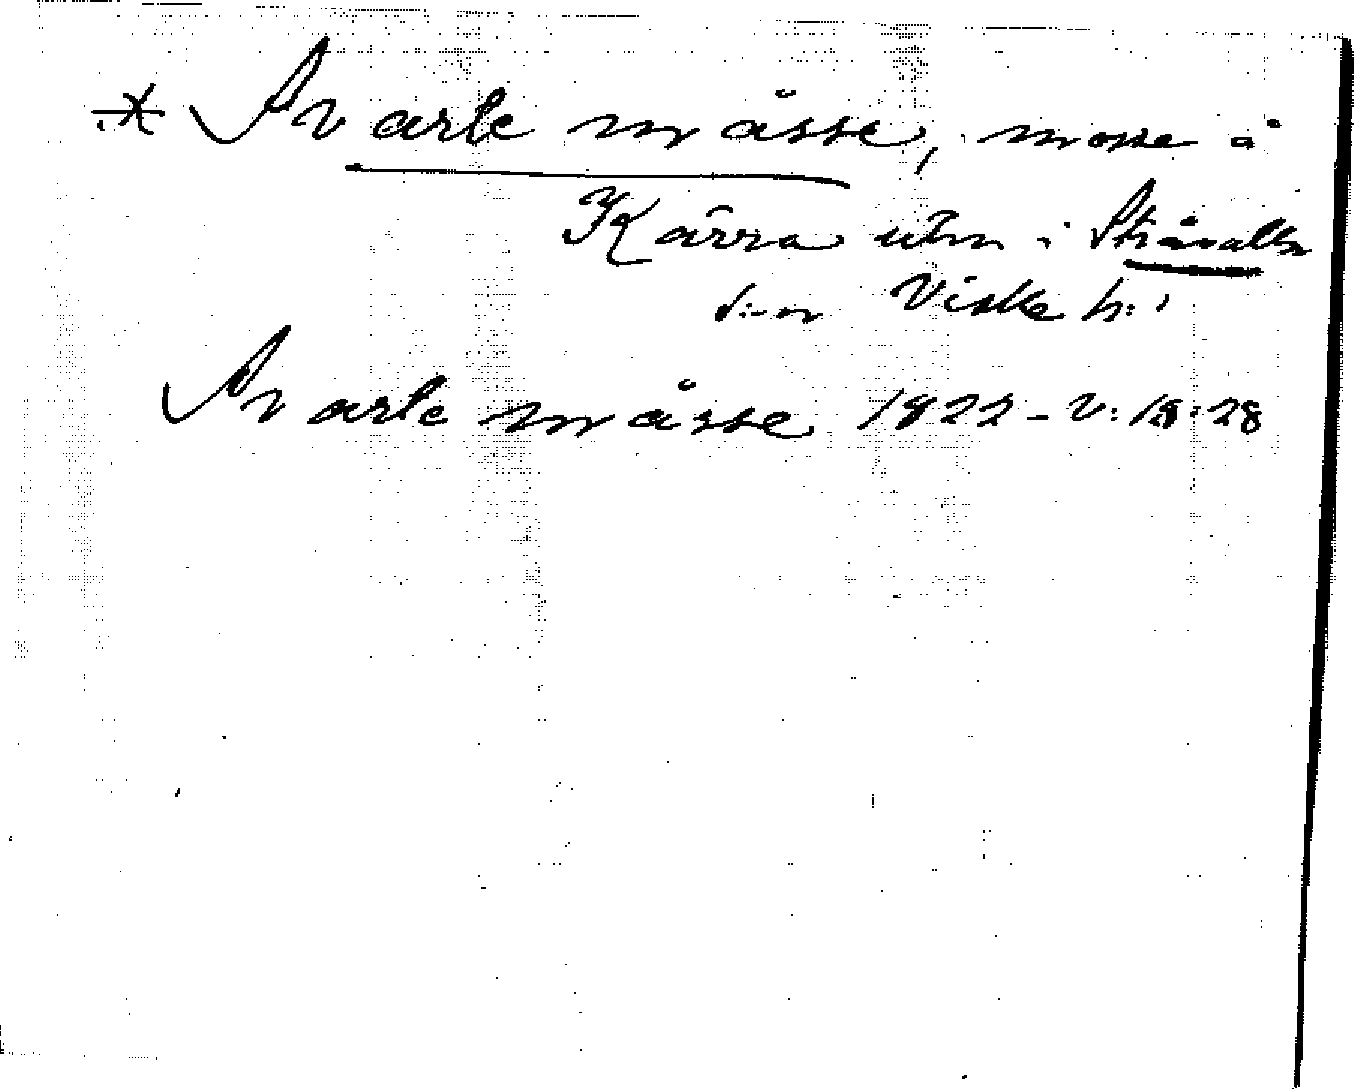 * Svarte måsse, mosse å
Kärra utm. i Stråvalla
s:n Viske h:
Svarte måsse 1822 - V: 18: 28